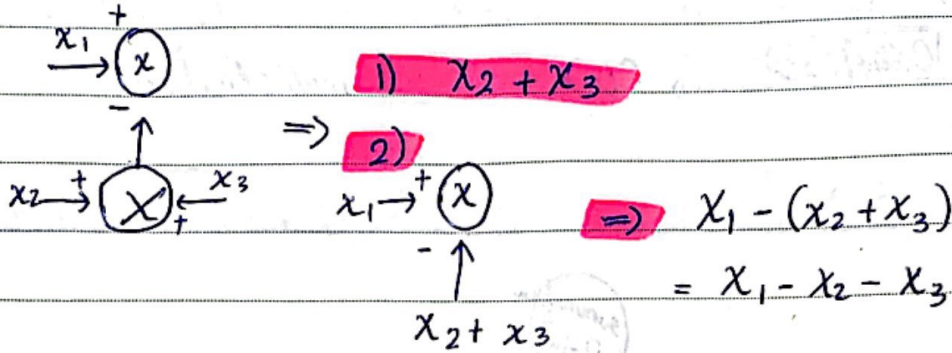 +
x₁ → (x)
-
1) x₂ + x₃
⇒
2)
x₂ → + (X) + ← x₃
x₁ → + (x)
-
x₂ + x₃
⇒ x₁ - (x₂ + x₃)
= x₁ - x₂ - x₃